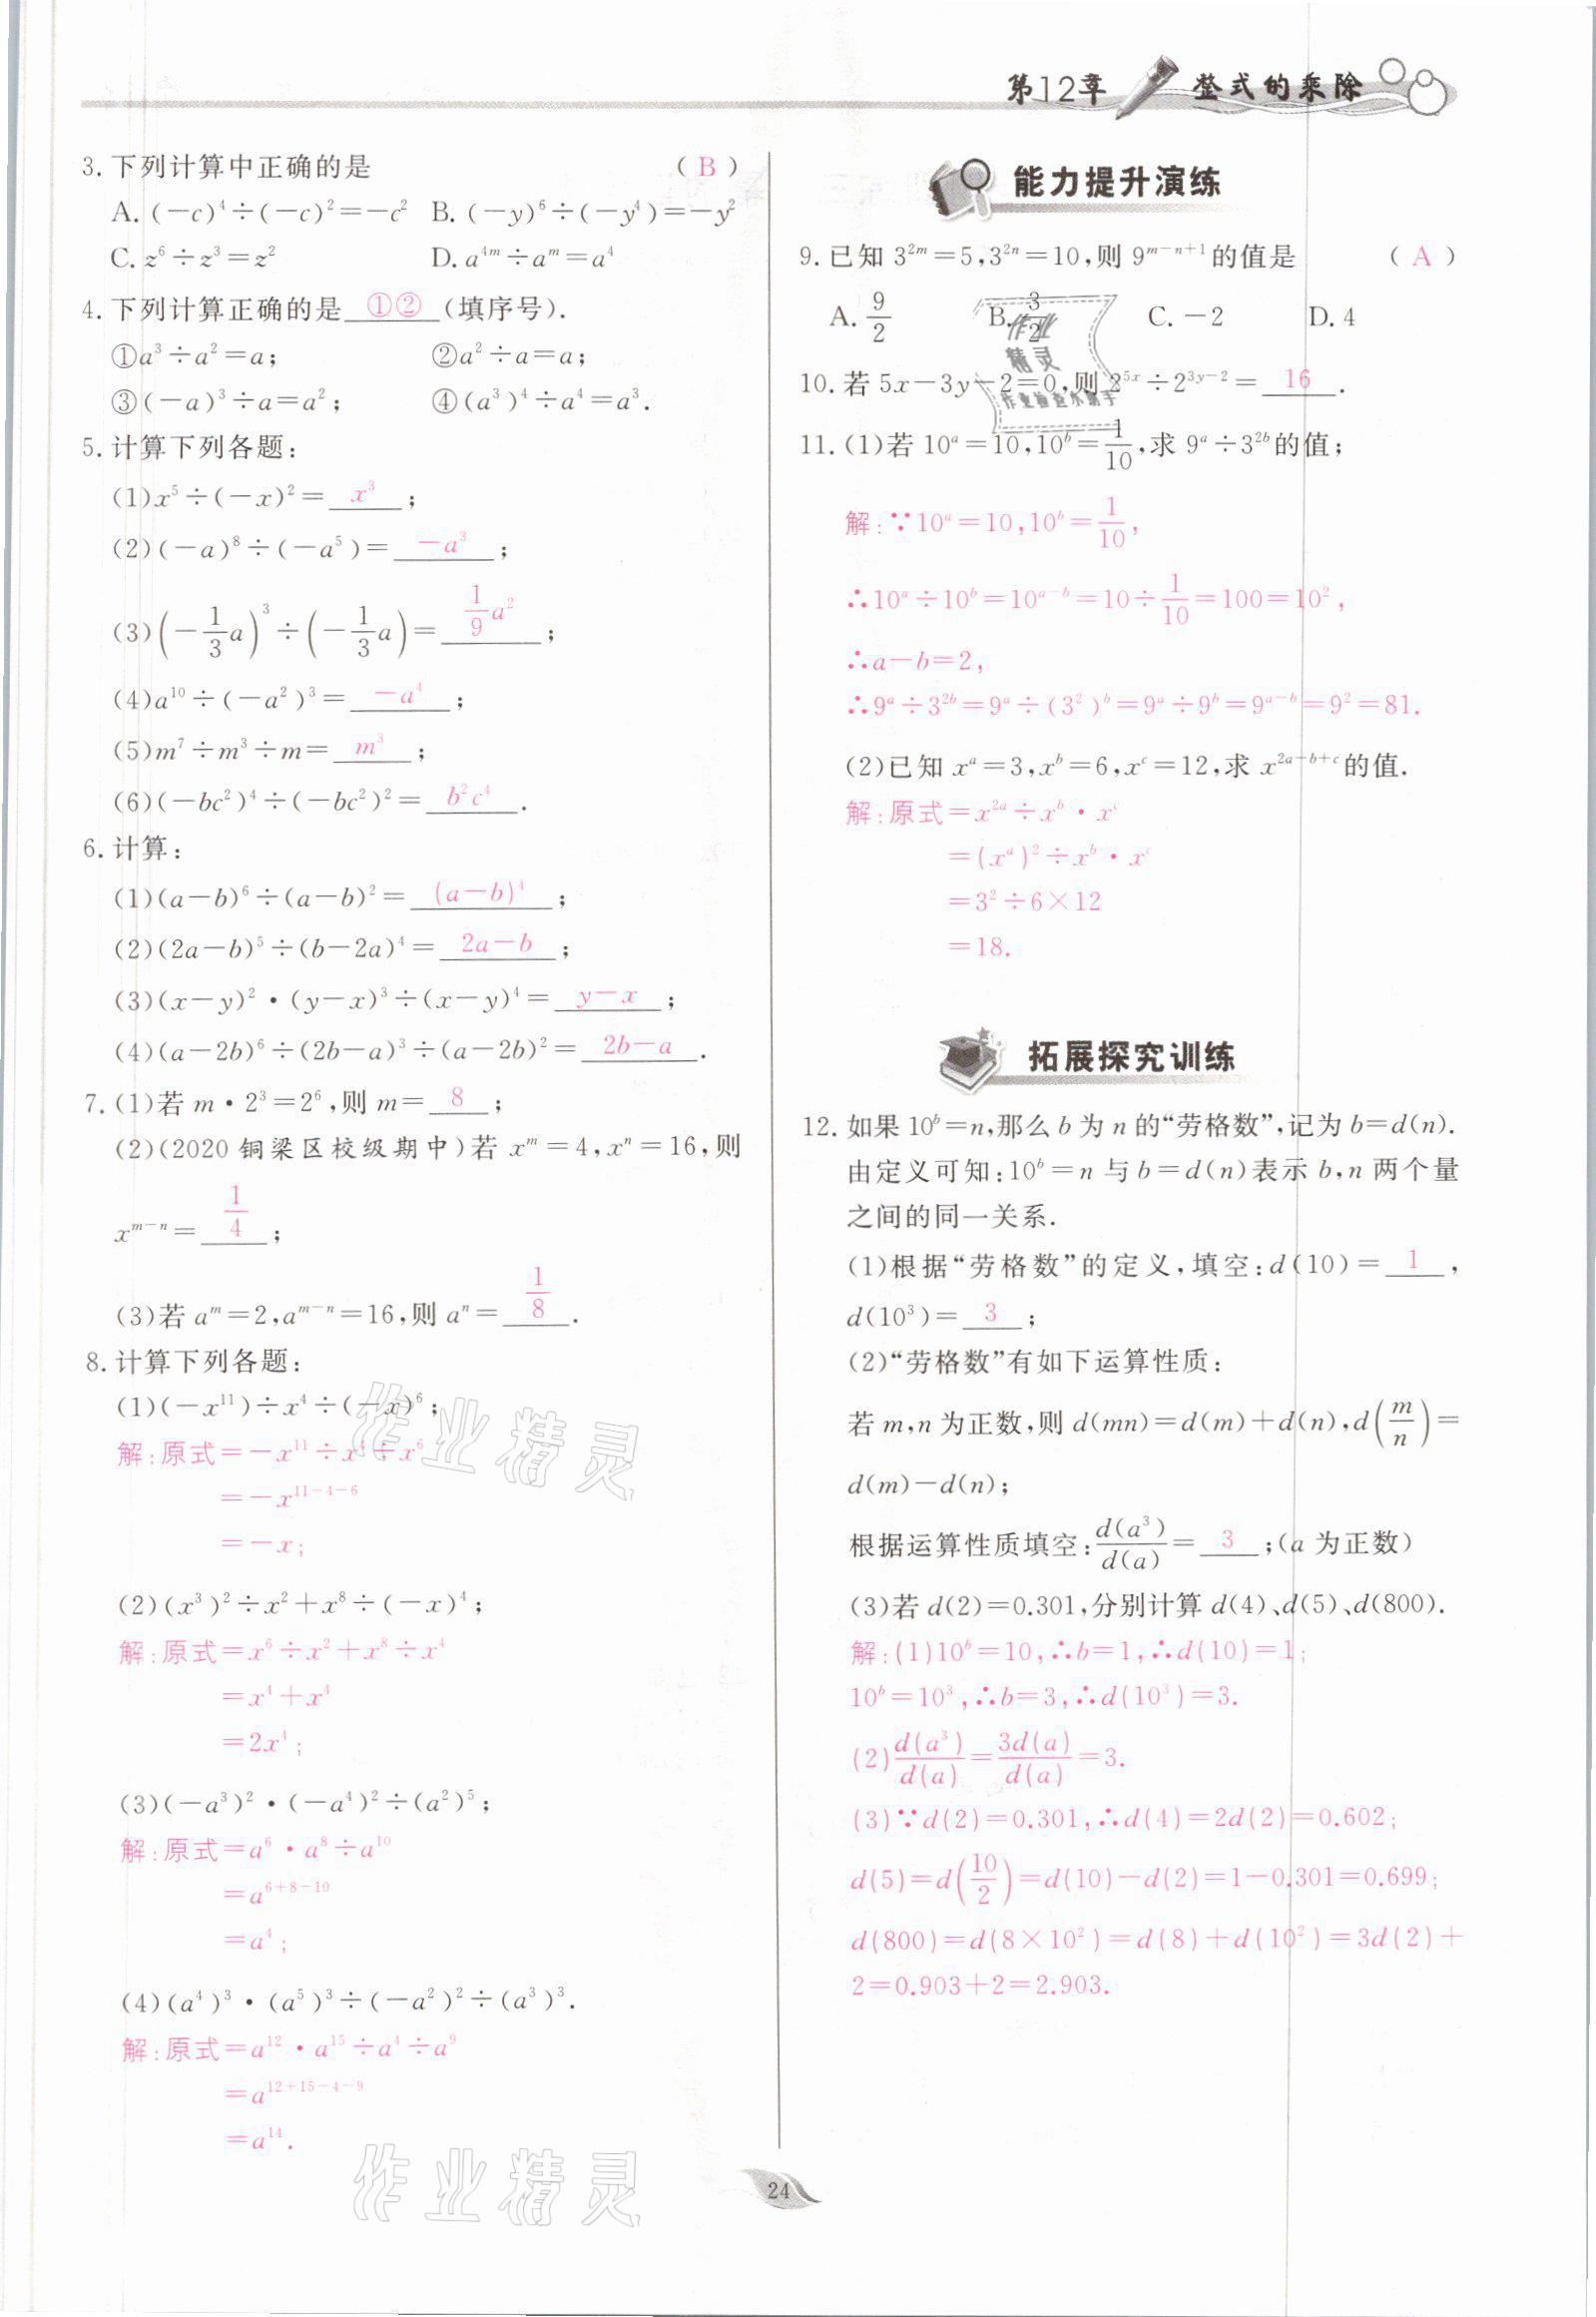 第12章 整式的乘除
3.下列计算中正确的是 （ B ）
A.(－c)⁴÷(－c)²＝－c² B.(－y)⁶÷(－y⁴)＝－y²
C.z⁶÷z³＝z² D.a⁴ᵐ÷aᵐ＝a⁴
4.下列计算正确的是 ①② (填序号).
①a³÷a²＝a; ②a²÷a＝a;
③(－a)³÷a＝a²; ④(a³)⁴÷a⁴＝a³.
5.计算下列各题:
(1)x⁵÷(－x)²＝ x³ ;
(2)(－a)⁸÷(－a⁵)＝ －a³ ;
(3)(－1/3a)³÷(－1/3a)＝ 1/9a² ;
(4)a¹⁰÷(－a²)³＝ －a⁴ ;
(5)m⁷÷m³÷m＝ m³ ;
(6)(－bc²)⁴÷(－bc²)²＝ b²c⁴ .
6.计算:
(1)(a－b)⁶÷(a－b)²＝ (a－b)⁴ ;
(2)(2a－b)⁵÷(b－2a)⁴＝ 2a－b ;
(3)(x－y)²·(y－x)³÷(x－y)⁴＝ y－x ;
(4)(a－2b)⁶÷(2b－a)³÷(a－2b)²＝ 2b－a .
7.(1)若 m·2³＝2⁶,则 m＝ 8 ;
(2)(2020 铜梁区校级期中)若 xᵐ＝4,xⁿ＝16,则
xᵐ⁻ⁿ＝ 1/4 ;
(3)若 aᵐ＝2,aᵐ⁻ⁿ＝16,则 aⁿ＝ 1/8 .
8.计算下列各题:
(1)(－x¹¹)÷x⁴÷(－x)⁶;
解:原式＝－x¹¹÷x⁴÷x⁶
＝－x¹¹⁻⁴⁻⁶
＝－x;
(2)(x³)²÷x²＋x⁸÷(－x)⁴;
解:原式＝x⁶÷x²＋x⁸÷x⁴
＝x⁴＋x⁴
＝2x⁴;
(3)(－a³)²·(－a⁴)²÷(a²)⁵;
解:原式＝a⁶·a⁸÷a¹⁰
＝a⁶⁺⁸⁻¹⁰
＝a⁴;
(4)(a⁴)³·(a⁵)³÷(－a²)²÷(a³)³.
解:原式＝a¹²·a¹⁵÷a⁴÷a⁹
＝a¹²⁺¹⁵⁻⁴⁻⁹
＝a¹⁴.
能力提升演练
9.已知 3²ᵐ＝5,3²ⁿ＝10,则 9ᵐ⁻ⁿ⁺¹的值是 （ A ）
A.9/2 B.3/2 C.－2 D.4
10.若 5x－3y－2＝0,则 2⁵ˣ÷2³ʸ⁻²＝ 16 .
11.(1)若 10ᵃ＝10,10ᵇ＝1/10,求 9ᵃ÷3²ᵇ的值;
解:∵10ᵃ＝10,10ᵇ＝1/10,
∴10ᵃ÷10ᵇ＝10ᵃ⁻ᵇ＝10÷1/10＝100＝10²,
∴a－b＝2,
∴9ᵃ÷3²ᵇ＝9ᵃ÷(3²)ᵇ＝9ᵃ÷9ᵇ＝9ᵃ⁻ᵇ＝9²＝81.
(2)已知 xᵃ＝3,xᵇ＝6,xᶜ＝12,求 x²ᵃ⁻ᵇ⁺ᶜ的值.
解:原式＝x²ᵃ÷xᵇ·xᶜ
＝(xᵃ)²÷xᵇ·xᶜ
＝3²÷6×12
＝18.
拓展探究训练
12.如果 10ᵇ＝n,那么 b 为 n 的“劳格数”,记为 b＝d(n).
由定义可知:10ᵇ＝n 与 b＝d(n)表示 b,n 两个量
之间的同一关系.
(1)根据“劳格数”的定义,填空:d(10)＝ 1 ,
d(10³)＝ 3 ;
(2)“劳格数”有如下运算性质:
若 m,n 为正数,则 d(mn)＝d(m)＋d(n),d(m/n)＝
d(m)－d(n);
根据运算性质填空:d(a³)/d(a)＝ 3 ;(a 为正数)
(3)若 d(2)＝0.301,分别计算 d(4)、d(5)、d(800).
解:(1)10ᵇ＝10,∴b＝1,∴d(10)＝1;
10ᵇ＝10³,∴b＝3,∴d(10³)＝3.
(2)d(a³)/d(a)＝3d(a)/d(a)＝3.
(3)∵d(2)＝0.301,∴d(4)＝2d(2)＝0.602;
d(5)＝d(10/2)＝d(10)－d(2)＝1－0.301＝0.699;
d(800)＝d(8×10²)＝d(8)＋d(10²)＝3d(2)＋
2＝0.903＋2＝2.903.
作业
精灵
作业检查小助手
作业精灵
作业精灵
24